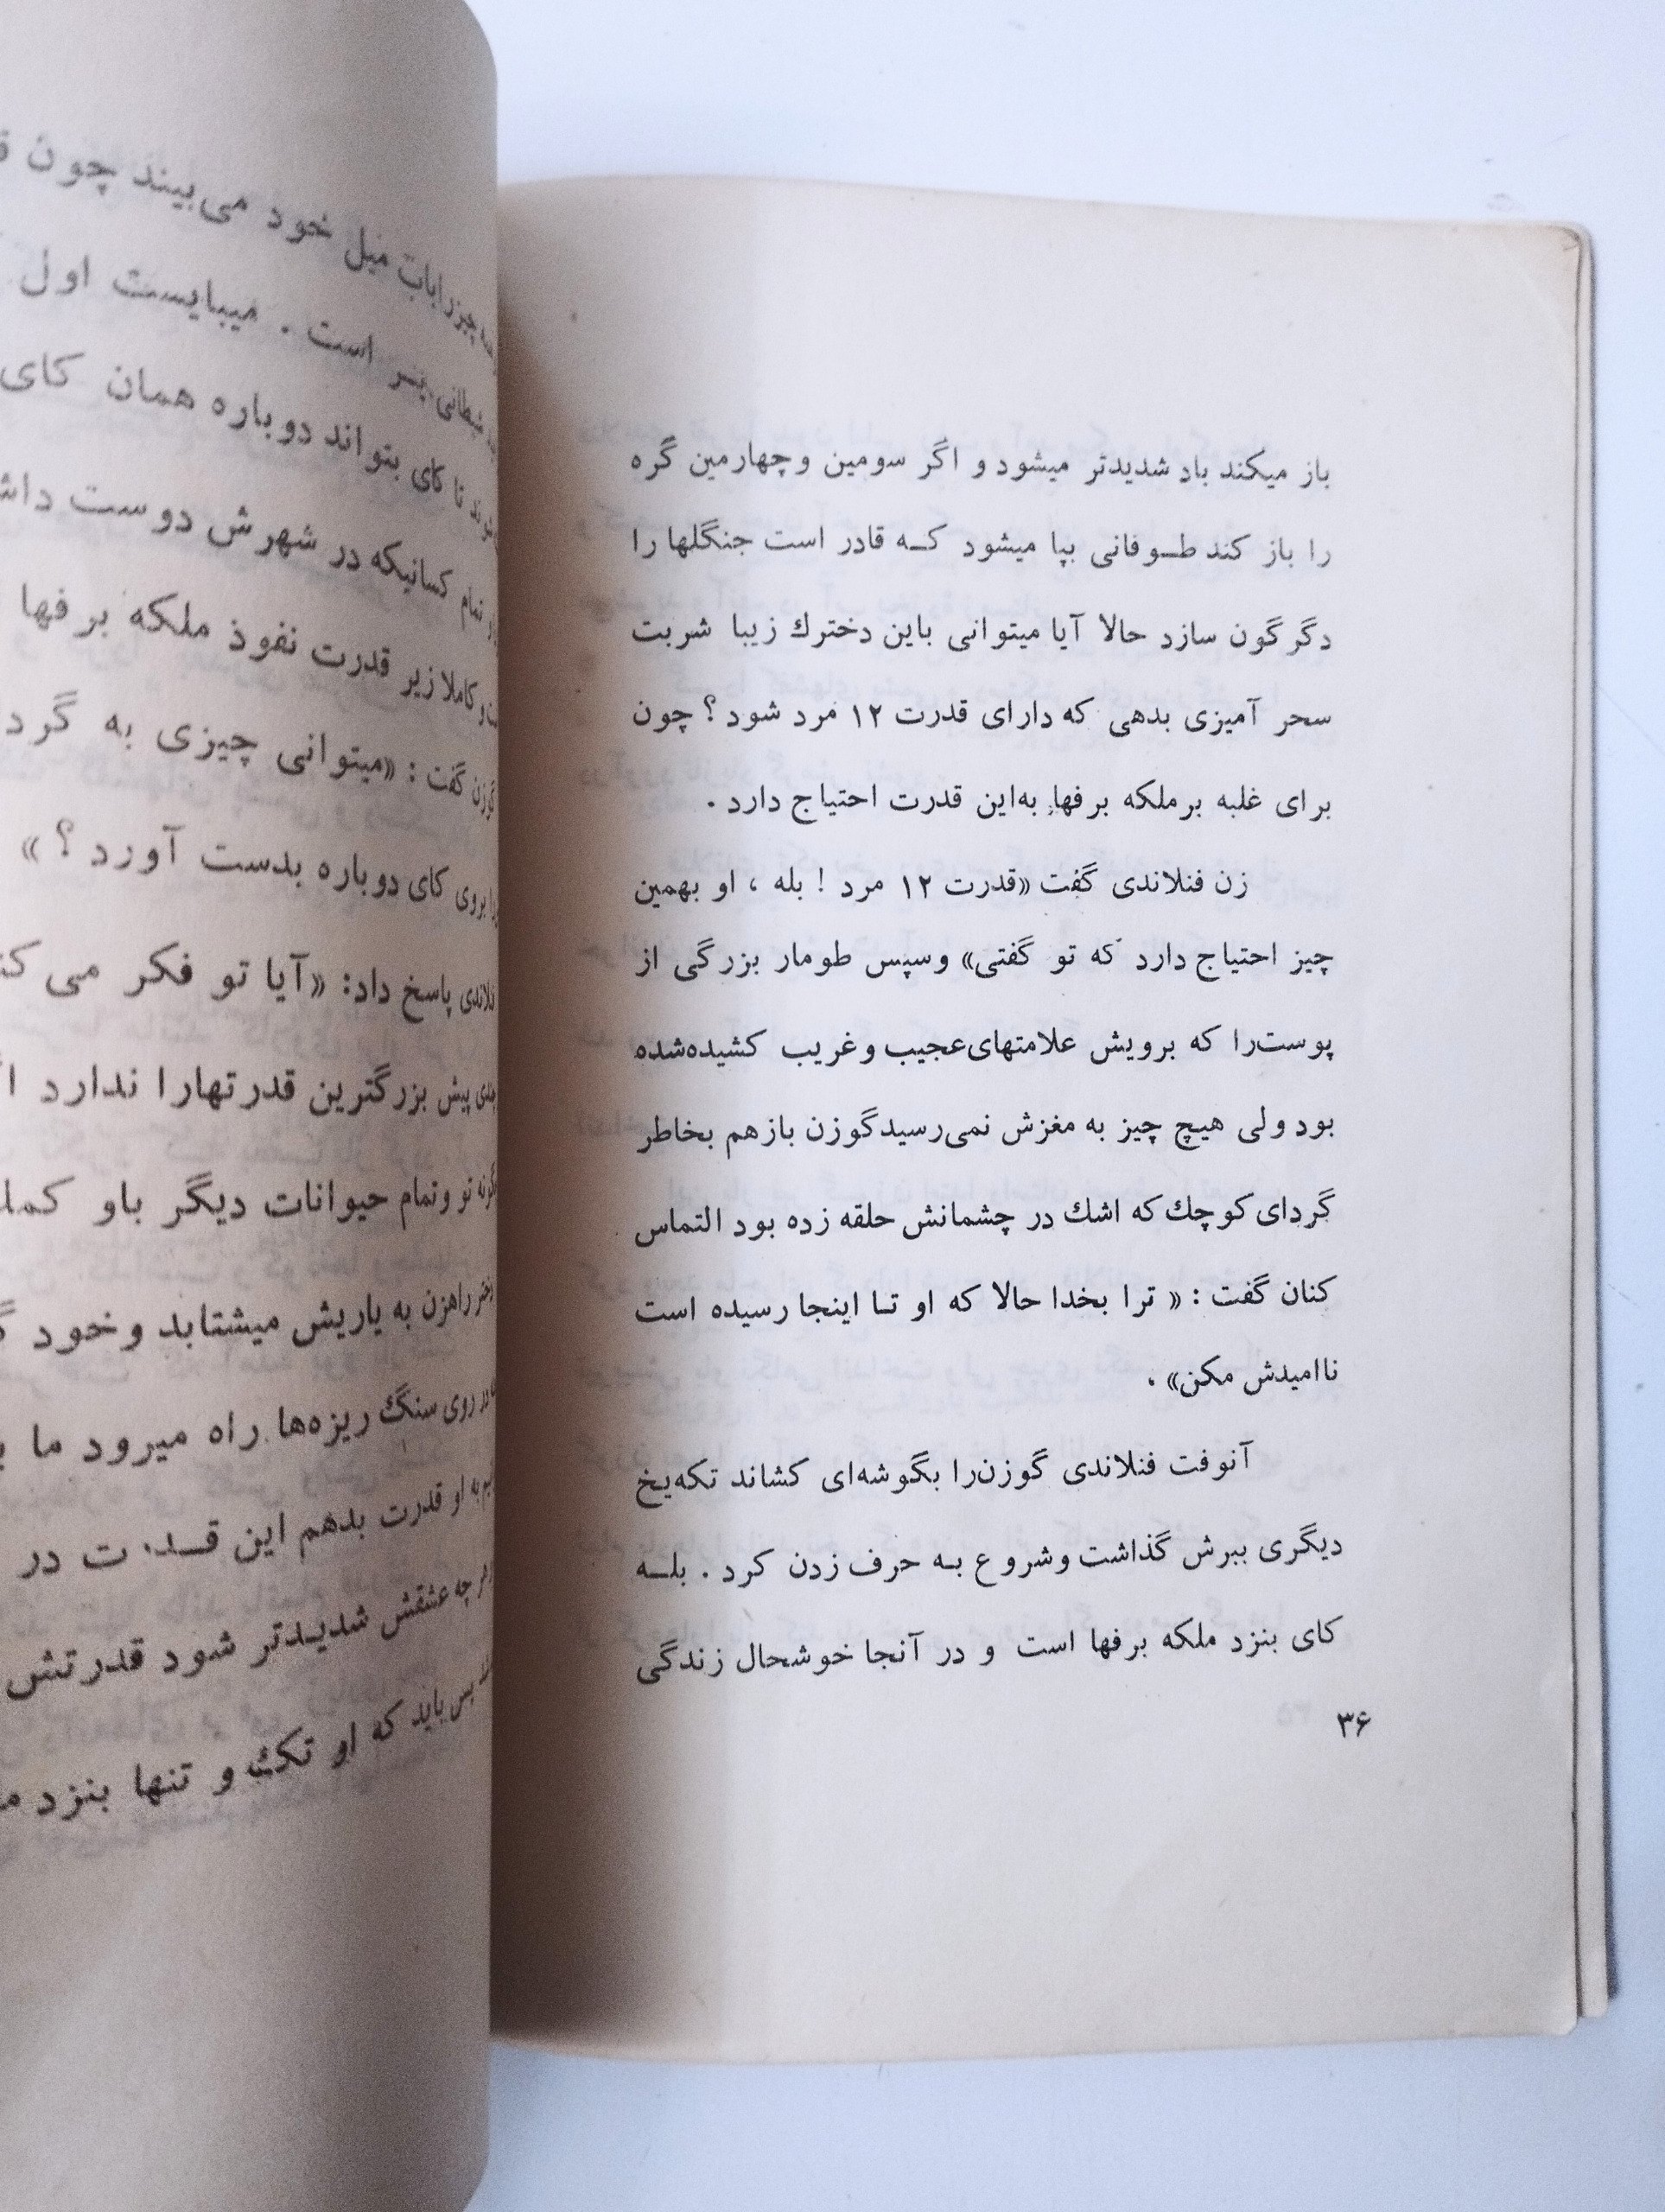 باز میکند باد شدیدتر میشود و اگر سومین و چهارمین گره
را باز کند طـوفانی بپا میشود کـه قادر است جنگلها را
دگرگون سازد حالا آیا میتوانی باین دخترك زیبا شربت
سحر آمیزی بدهی که دارای قدرت ۱۲ مرد شود؟ چون
برای غلبه بر ملکه برفها به‌این قدرت احتیاج دارد .
زن فنلاندی گفت «قدرت ۱۲ مرد ! بله ، او بهمین
چیز احتیاج دارد که تو گفتی» وسپس طومار بزرگی از
پوست‌را که برویش علامتهای‌عجیب و غریب کشیده‌شده
بود ولی هیچ چیز به مغزش نمی‌رسید گوزن بازهم بخاطر
گردای کوچك که اشك در چشمانش حلقه زده بود التماس
کنان گفت : « ترا بخدا حالا که او تـا اینجا رسیده است
ناامیدش مکن» .
آنوقت فنلاندی گوزن‌را بگوشه‌ای کشاند تکه‌یخ
دیگری ببرش گذاشت و شروع بـه حرف زدن کرد . بلـه
کای بنزد ملکه برفها است و در آنجا خوشحال زندگی
۳۶
چیزراباب میل خود می‌بیند چون
شیطانی پسر است . میبایست اول
تا کای بتواند دوباره همان کای
تمام کسانیکه در شهرش دوست
و کاملا زیر قدرت نفوذ ملکه برفها
زن گفت : «میتوانی چیزی به گرد
بروی کای دوباره بدست آورد ؟ »
پاسخ داد: «آیا تو فکر می
پیش بزرگترین قدرتهارا ندارد
تو و تمام حیوانات دیگر باو
راهزن به یاریش میشتابد و خود
روی سنگ ریزه‌ها راه میرود ما
به او قدرت بدهم این در
چه عشقش شدیـدتر شود قدرتش
پس باید که او تك و تنها بنزد